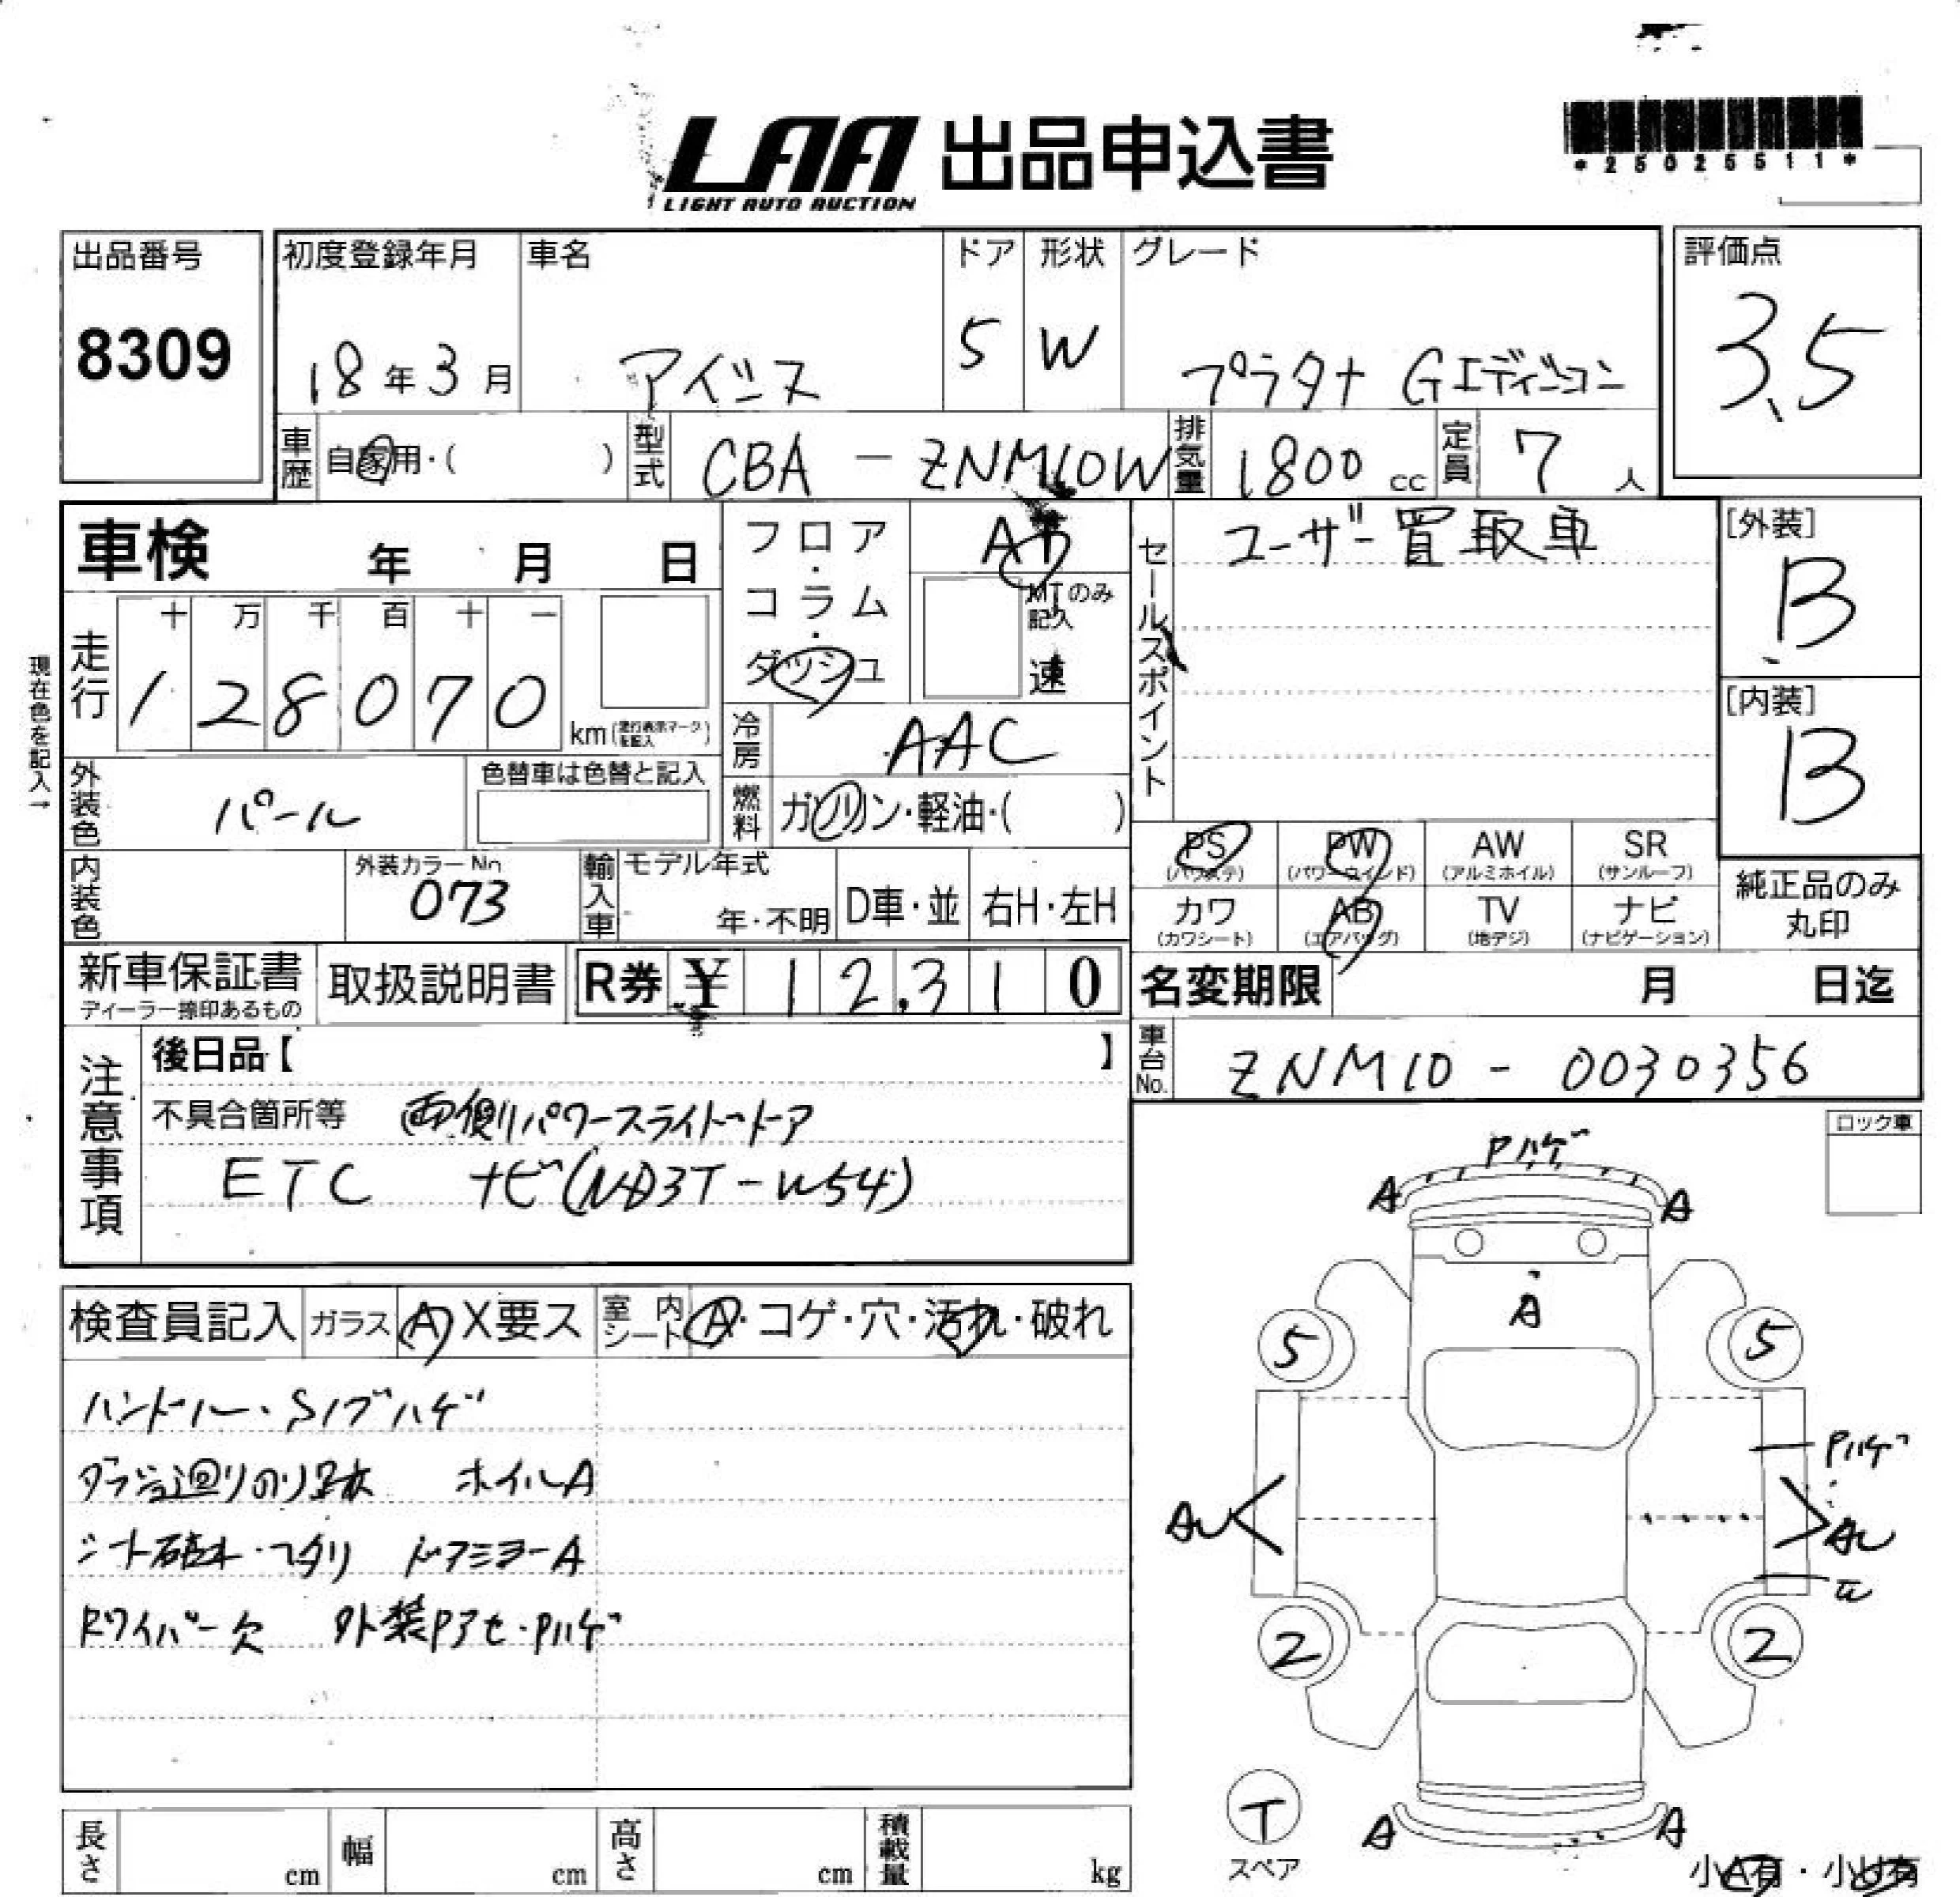 LAA 出品申込書
LIGHT AUTO AUCTION
*25025511*
出品番号
8309
初度登録年月
18年3月
車名
アイシス
ドア
5
形状
W
グレード
プラタナ Gエディション
評価点
3.5
車歴
自家用・( )
型式
CBA - ZNM10W
排気量
1800 cc
定員
7 人
車検 年 月 日
現在色を記入→
走行
十 万 千 百 十 一
1 2 8 0 7 0
km (走行表示マークを記入)
フロア・コラム・ダッシュ
AT
MTのみ記入
速
冷房
AAC
燃料
ガソリン・軽油・( )
セールスポイント
ユーザー買取車
[外装]
B
[内装]
B
外装色
パール
色替車は色替と記入
内装色
外装カラーNo
073
輸入車
モデル年式
年・不明
D車・並
右H・左H
PS (パワステ)
PW (パワーウインド)
AW (アルミホイル)
SR (サンルーフ)
カワ (カワシート)
AB (エアバッグ)
TV (地デジ)
ナビ (ナビゲーション)
純正品のみ
丸印
新車保証書
ディーラー捺印あるもの
取扱説明書
R券 ¥ 12,310
名変期限 月 日迄
車台No.
ZNM10 - 0030356
注意事項
後日品【 】
不具合箇所等 両側パワースライドドア
ETC ナビ(NHD3T-W54)
ロック車
検査員記入
ガラス A X要ス
室内シート A・コゲ・穴・汚れ・破れ
ハンドル・Sノブハゲ
ダッシュ廻りのり跡 ホイルA
シート ドアミラーA
Rワイパー欠 外装Pアセ・Pハゲ
Pハゲ
A A
A
5 5
Pハゲ
AU
AU
2 2
T
スペア
A A
小A有・小U有
長さ cm
幅 cm
高さ cm
積載量 kg